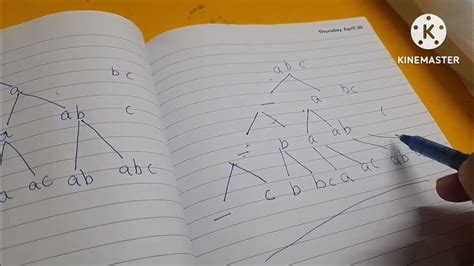 bc
a
ab c
a
ac ab abc
Thursday, April 20
K
KINEMASTER
abc
— a bc
— b a ab c
— c b bc a ac ab